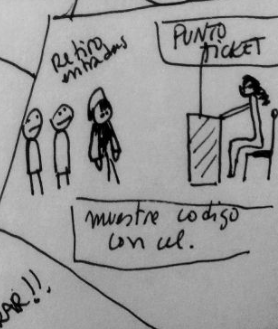 Retiro
entradas
PUNTO
TICKET
muestre codigo
con cel.
RAR!!